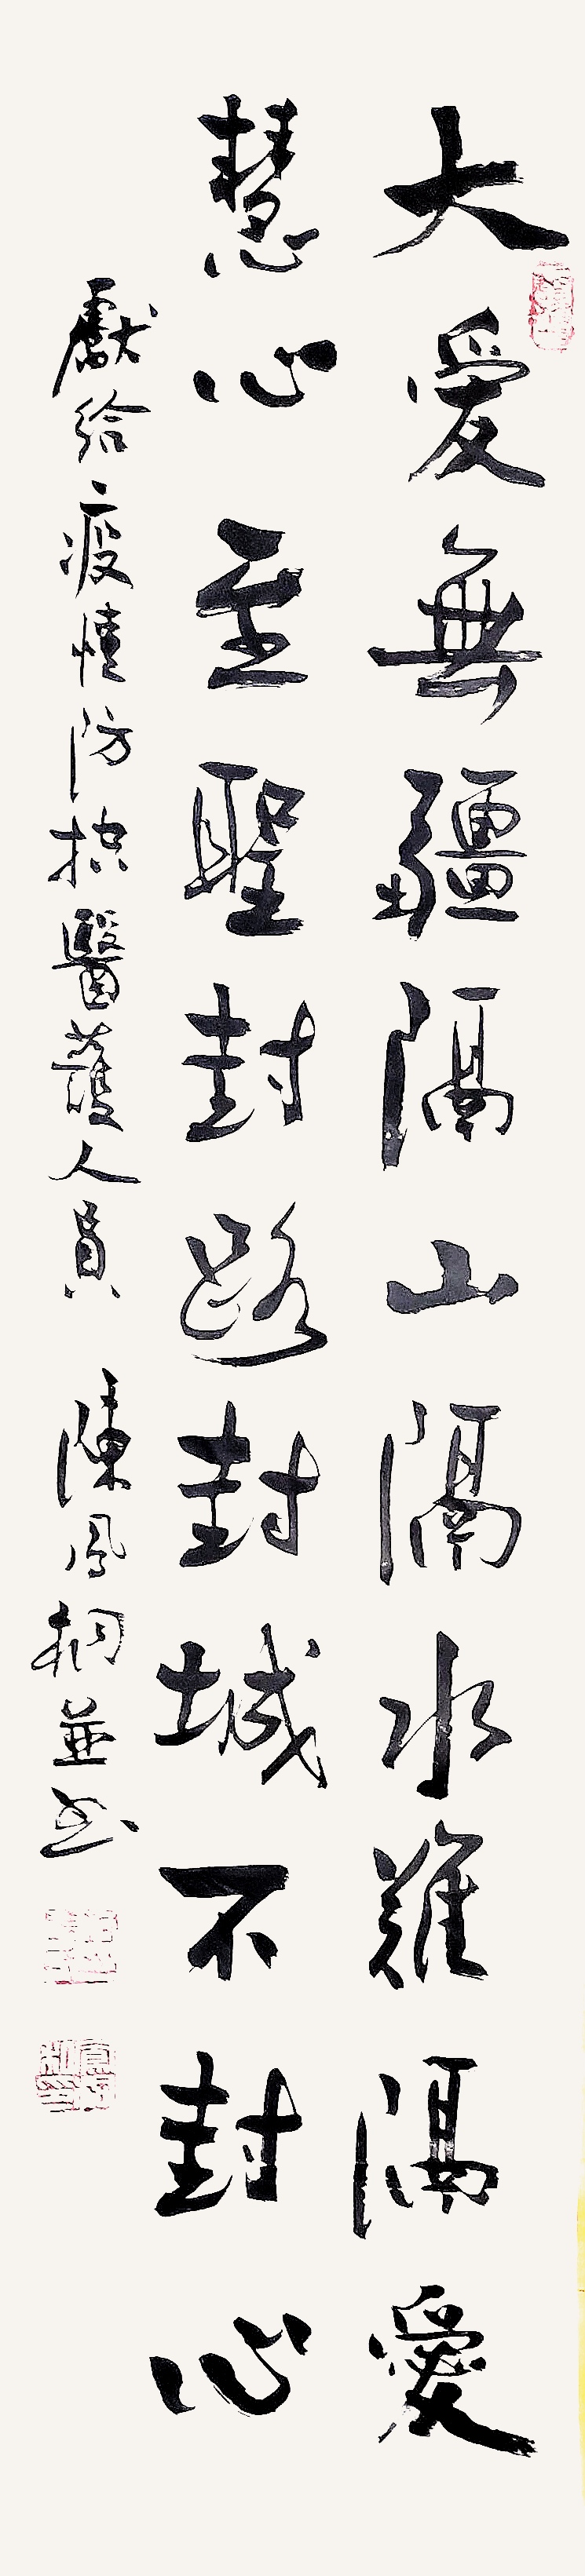 大愛無疆隔山隔水難隔愛
慧心至聖封路封城不封心
獻給疫情防控醫護人員 陳鳳桐並書